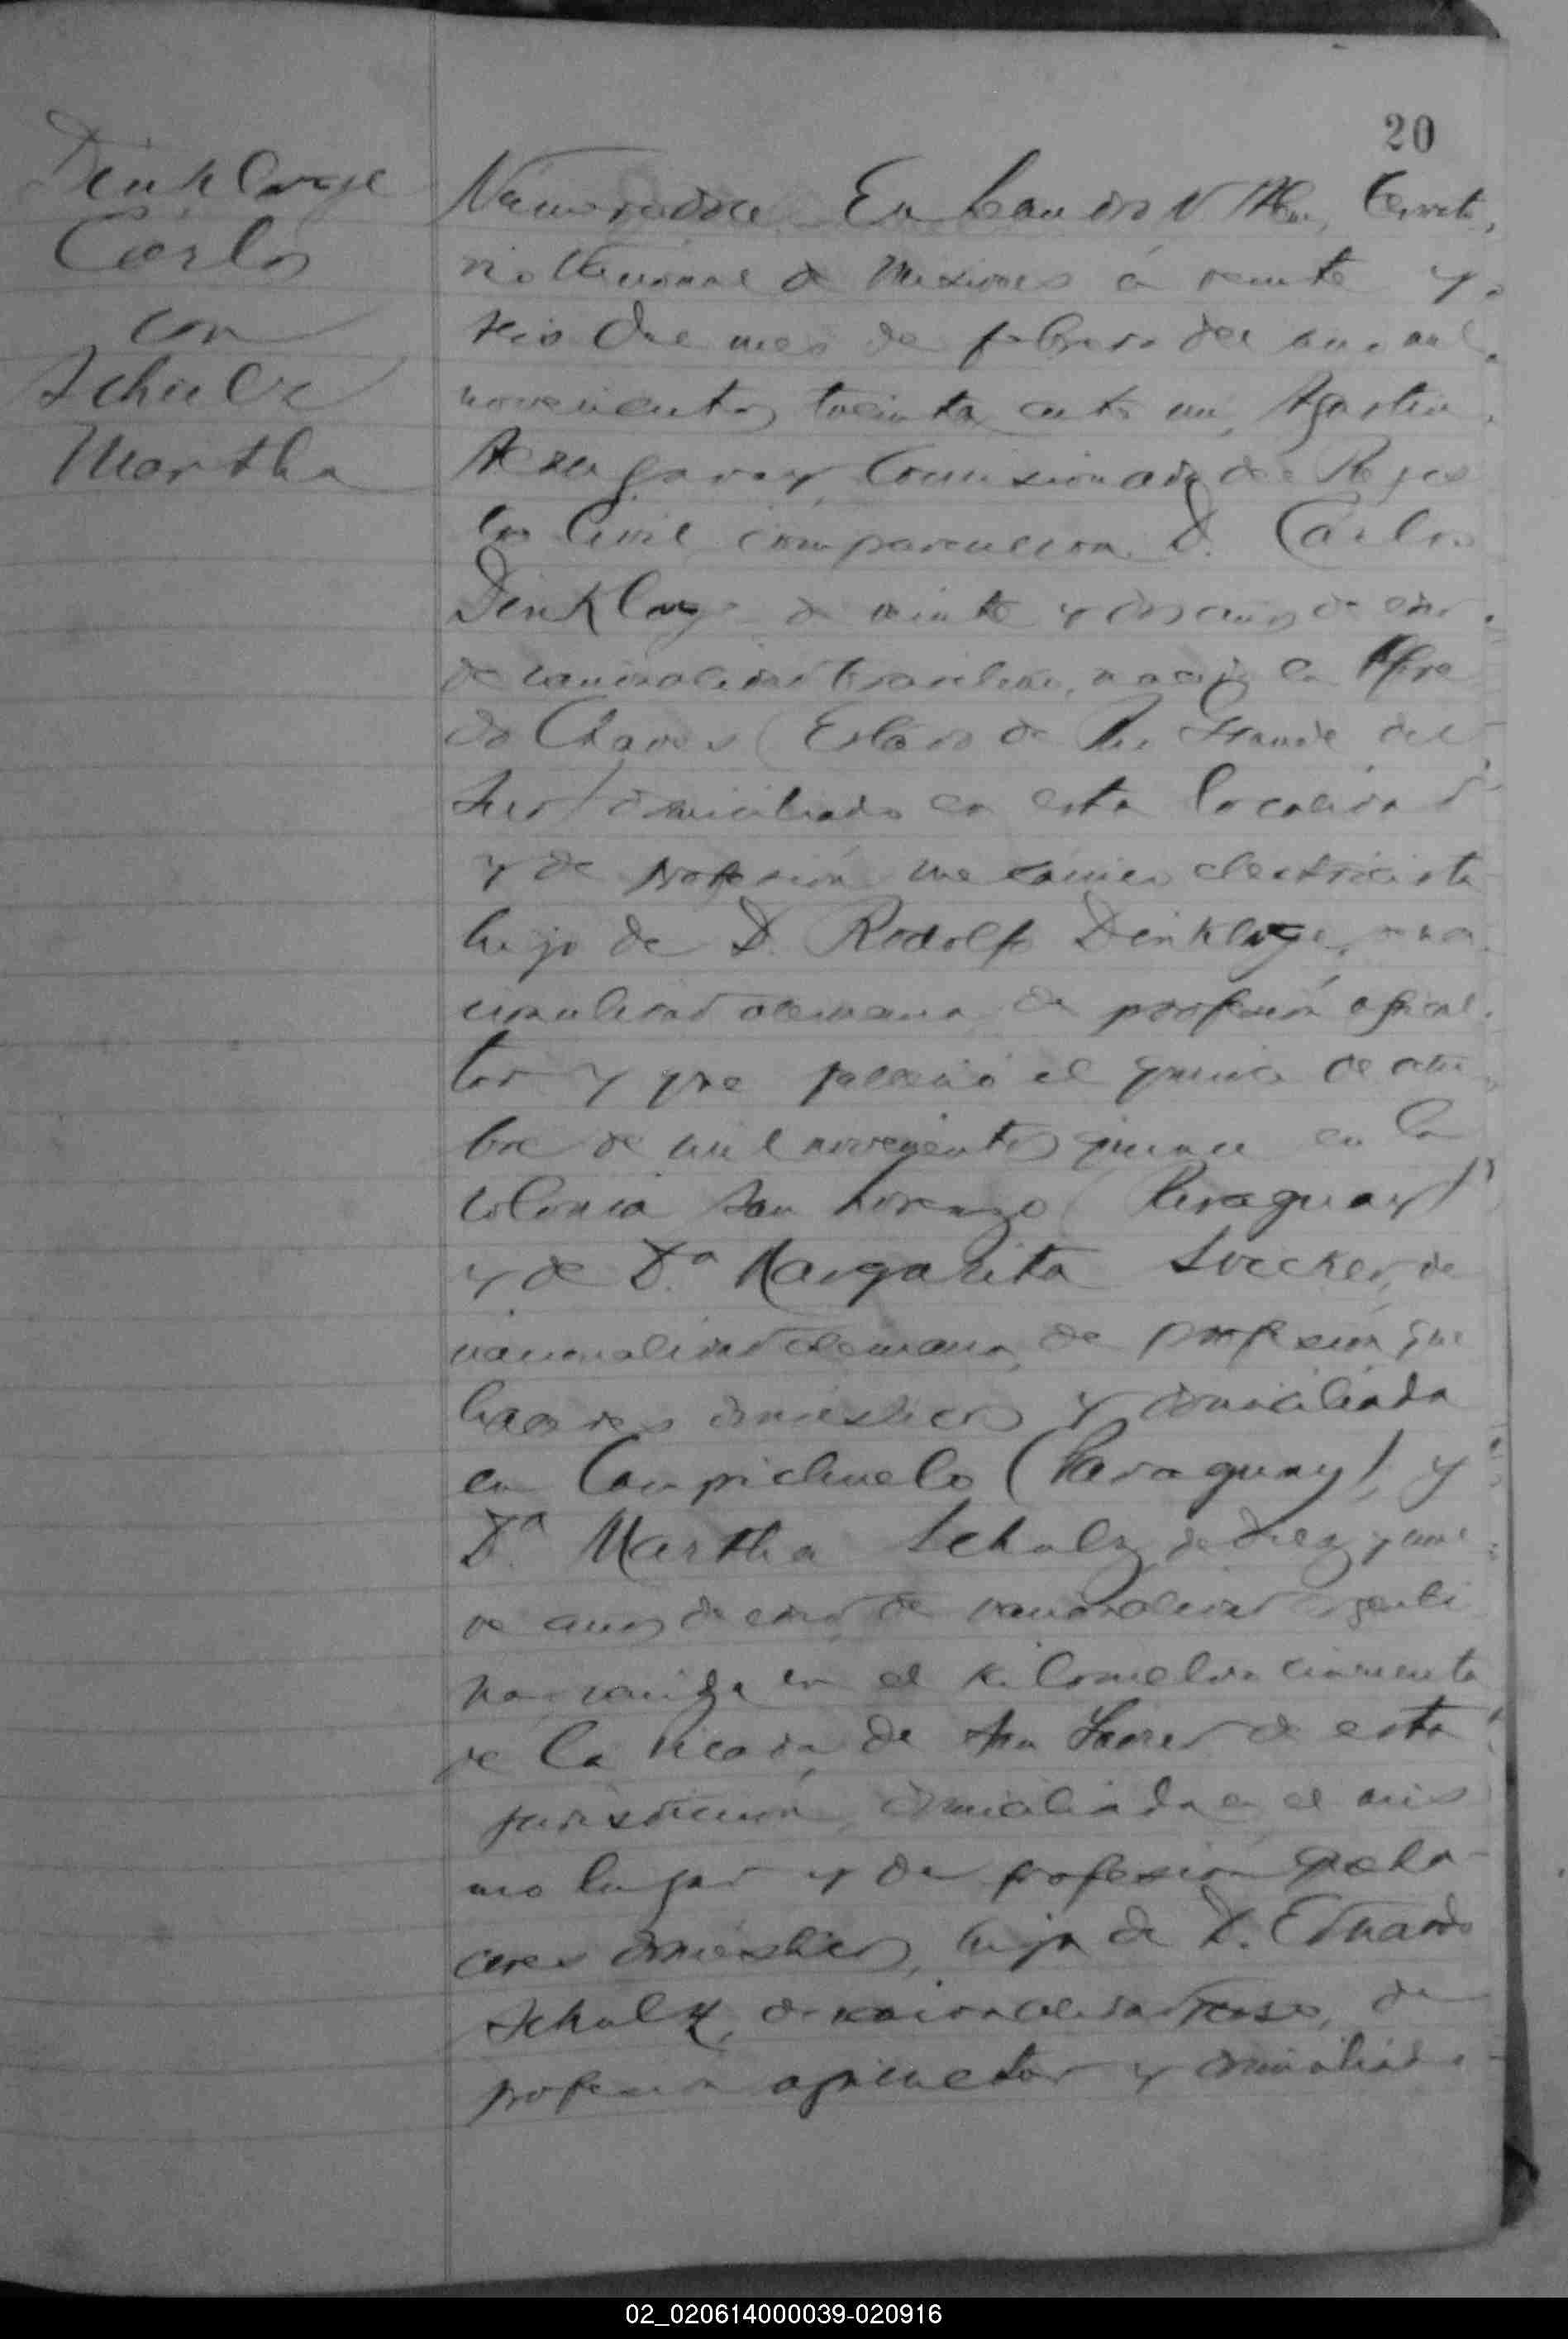 20
Dinklage
Carlos
con
Schulz
Martha
Número doce En Leandro N Alem, Territo,
rio Nacional de Misiones á veinte y
seis del mes de febrero del año mil
novecientos treinta, ante mi, Agustin
Comisionado del Regis
tro Civil comparecieron D. Carlos
Dinklage de veinte y dos años de edad
de nacionalidad brasileña, nacido en Alfre
do Chaves (Estado de Rio Grande del
Sur) domiciliado en esta localidad
y de profesión mecánico electricista
hijo de D. Rodolfo Dinklage, de na
cionalidad alemana de profesión agricul
tor y que falleció el quince de octu
bre de mil novecientos quince en la
colonia San Lorenzo (Paraguay)
y de Da Margarita Luecker, de
nacionalidad alemana, de profesión que
haceres domésticos y domiciliada
en Campichuelo (Paraguay), y
Da. Martha Schulz de diez y nue
ve años de edad, de nacionalidad argenti
na, nacida en el kilometro cincuenta
de la Picada de San Javier de esta
jurisdicción, domiciliada en el mis
mo lugar y de profesión queha
ceres domésticos, hija de D. Eduardo
Schulz, de nacionalidad rusa, de
profesión agricultor y domiciliado
02_020614000039-020916